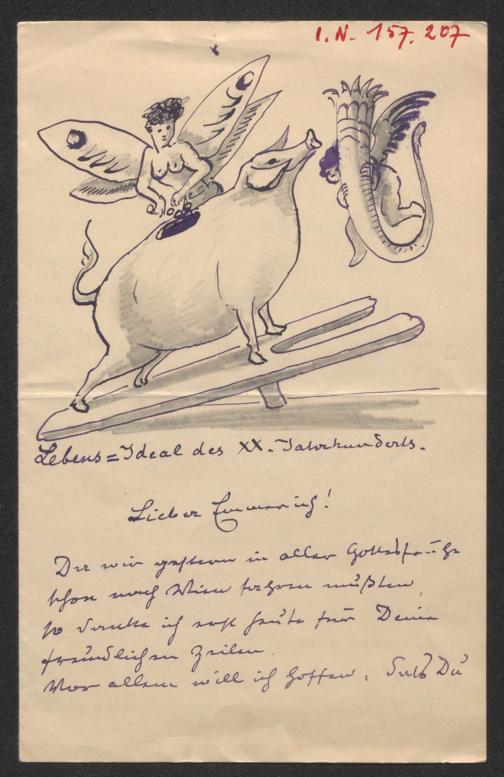 I.N. 157.207
Lebens=Ideal des XX. Jahrhunderts.
Lieber Emmerich!
Da wir gestern in aller Gottesfrühe
schon nach Wien fahren mußten,
so danke ich erst heute für Deine
freundlichen Zeilen.
Vor allem will ich hoffen, daß Du